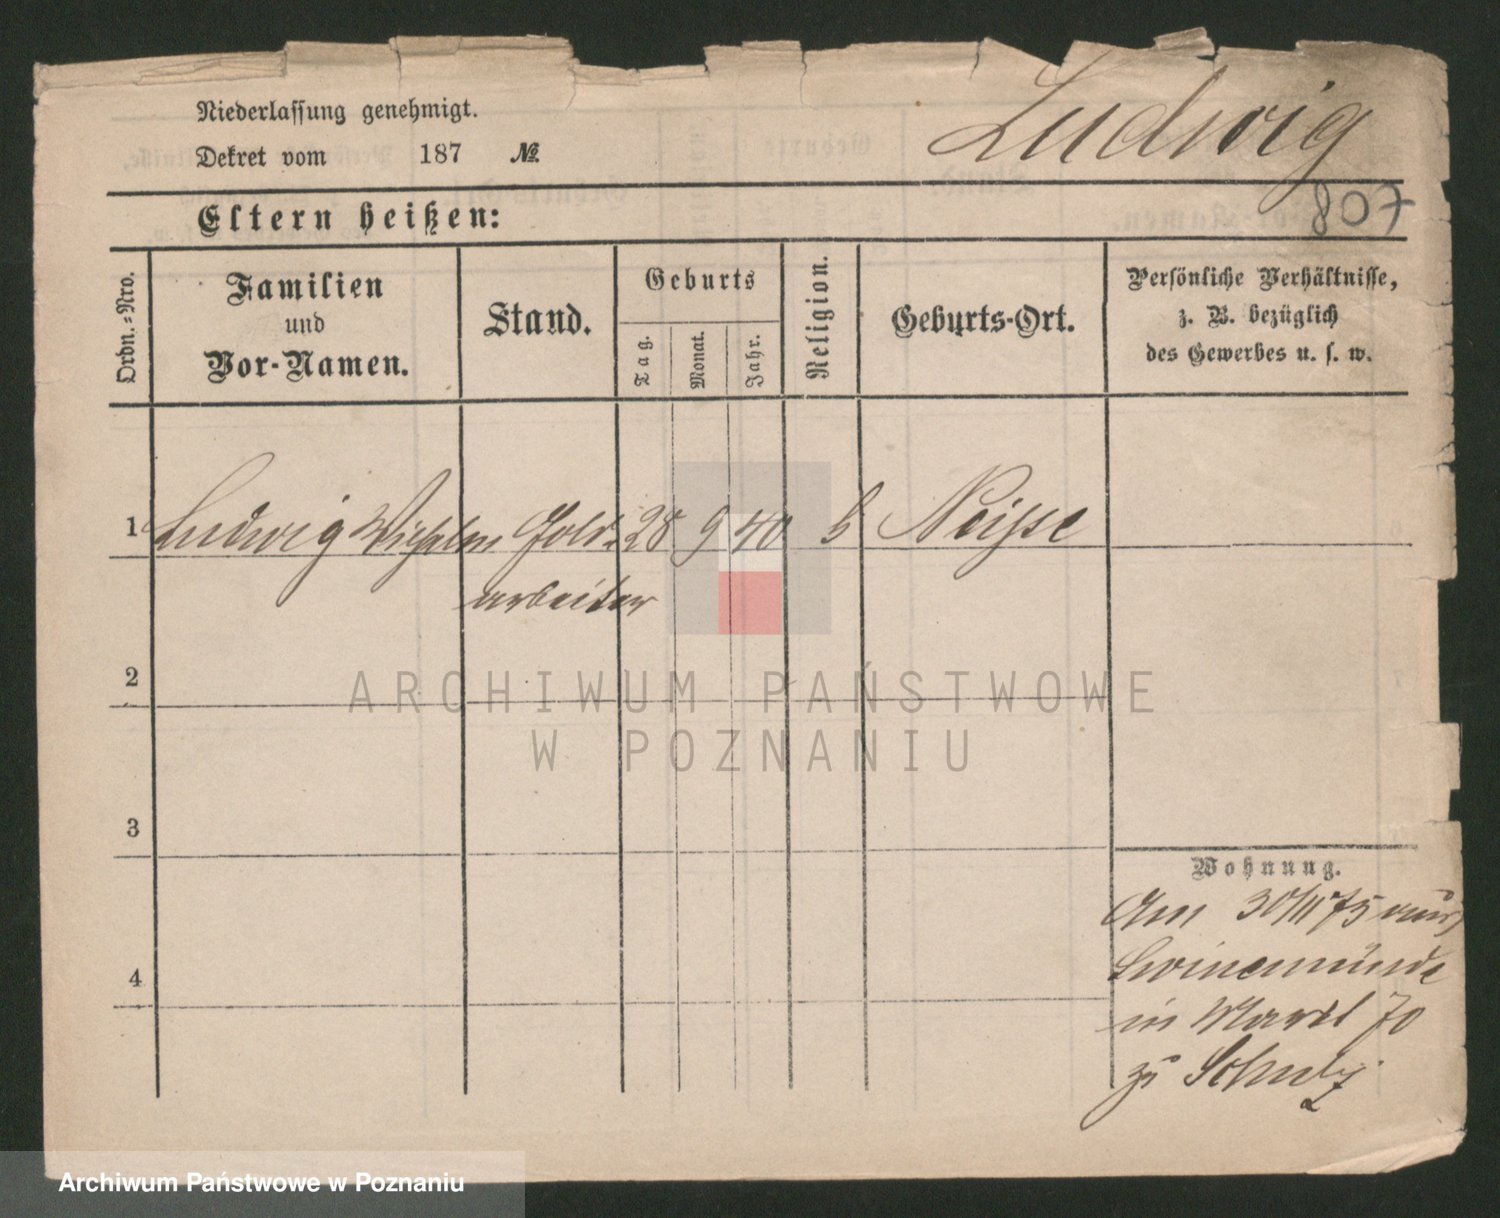 Niederlassung genehmigt.
Dekret vom 187 №
Ludwig
807
Eltern heißen:
Ordn.-Nro.
Familien
und
Vor-Namen.
Stand.
Geburts
Tag.
Monat.
Jahr.
Religion.
Geburts-Ort.
Persönliche Verhältnisse,
z. B. bezüglich
des Gewerbes u. s. w.
1 Ludwig Wilhelm Gold- 28 9 40 Neisse
arbeiter
2
ARCHIWUM PAŃSTWOWE
W POZNANIU
3
4
Wohnung.
Am 30/11 75 aus
Swinemünde
in Markt 70
zu Schulz
Archiwum Państwowe w Poznaniu